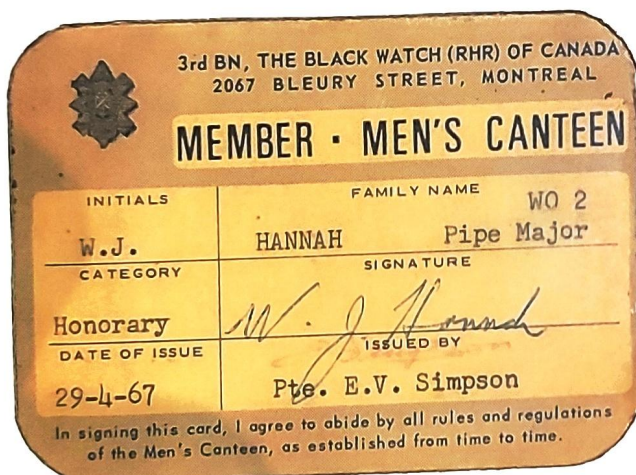 3rd BN, THE BLACK WATCH (RHR) OF CANADA
2067 BLEURY STREET, MONTREAL
MEMBER · MEN'S CANTEEN
INITIALS
FAMILY NAME
WO 2
W.J.
HANNAH
Pipe Major
CATEGORY
SIGNATURE
Honorary
W. J Hannah
DATE OF ISSUE
ISSUED BY
29-4-67
Pte. E.V. Simpson
In signing this card, I agree to abide by all rules and regulations
of the Men's Canteen, as established from time to time.